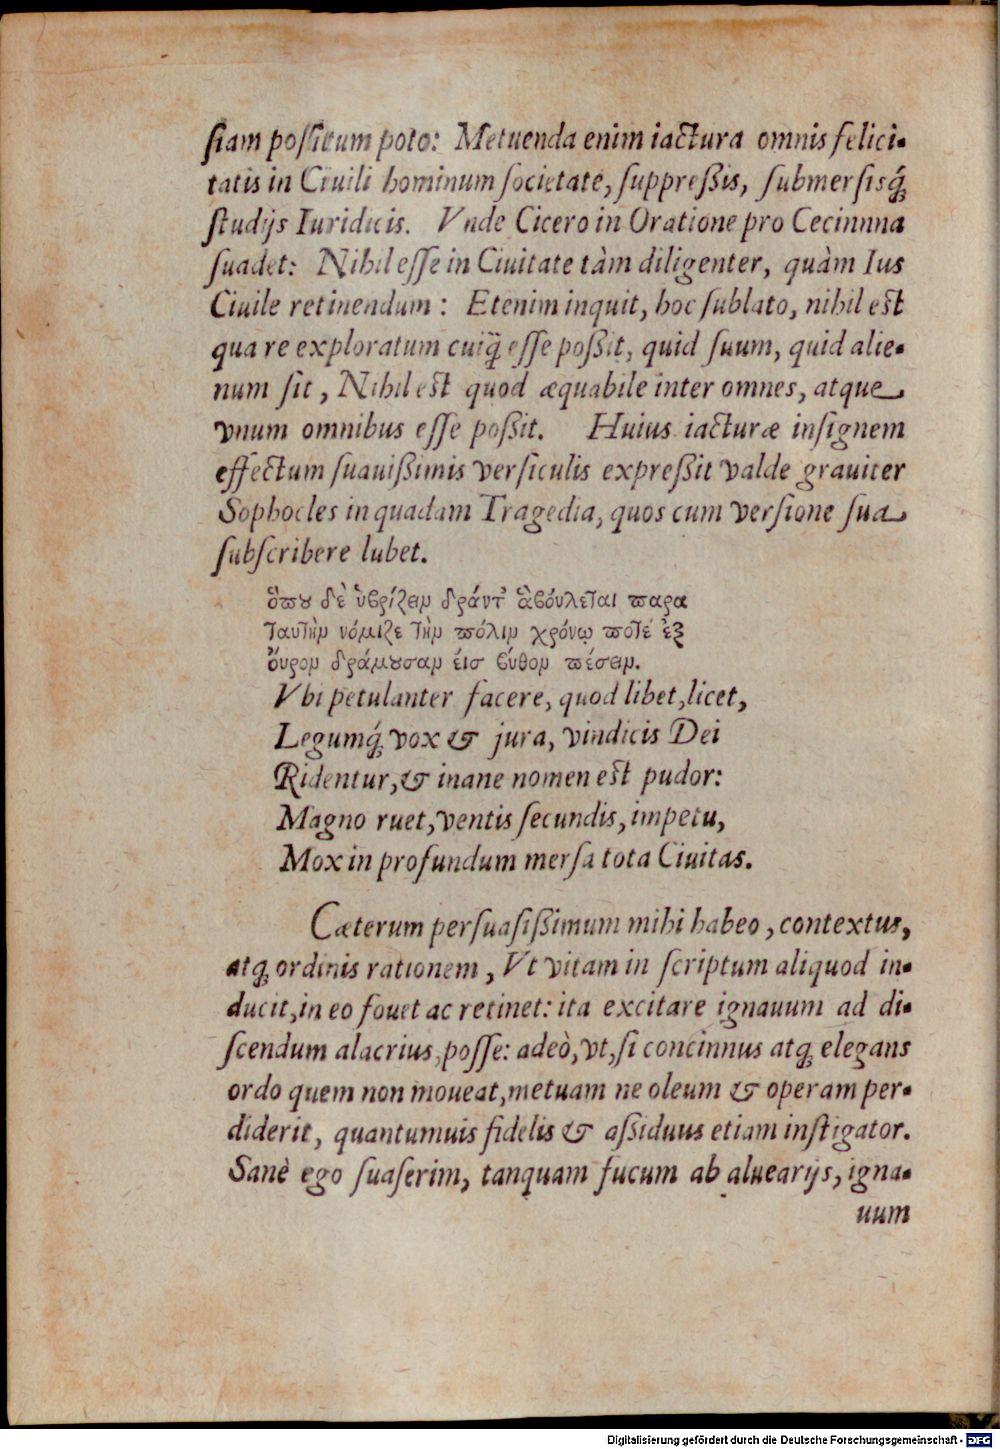 ſiam poſitum poto: Metuenda enim iactura omnis felici-
tatis in Ciuili hominum ſocietate, ſuppreßis, ſubmerſisq́;
ſtudijs Iuridicis. Vnde Cicero in Oratione pro Cecinnna
ſuadet: Nihil eſſe in Ciuitate tàm diligenter, quàm Ius
Ciuile retinendum: Etenim inquit, hoc ſublato, nihil est
qua re exploratum cuiq̃ eſſe poßit, quid ſuum, quid alie-
num ſit, Nihil est quod æquabile inter omnes, atque
vnum omnibus eſſe poßit. Huius iacturæ inſignem
effectum ſuauißimis verſiculis expreßit valde grauiter
Sophocles in quadam Tragedia, quos cum verſione ſua
ſubſcribere lubet.
ὅπου δὲ ὑβρίζειν δράντ' ἃ βόυλεται παρα
ταυτὴν νόμιζε τὴν πόλιν χρόνῳ ποτέ ἐξ
ὄυρον δράμουσαν ἐισ βύθον πέσειν.
Vbi petulanter facere, quod libet, licet,
Legumq́; vox & jura, vindicis Dei
Ridentur, & inane nomen est pudor:
Magno ruet, ventis ſecundis, impetu,
Mox in profundum merſa tota Ciuitas.
Cæterum perſuaſißimum mihi habeo, contextus,
atq; ordinis rationem, Vt vitam in ſcriptum aliquod in-
ducit, in eo fouet ac retinet: ita excitare ignauum ad di-
ſcendum alacrius, poſſe: adeò, vt, ſi concinnus atq; elegans
ordo quem non moueat, metuam ne oleum & operam per-
diderit, quantumuis fidelis & aßiduus etiam inſtigator.
Sanè ego ſuaſerim, tanquam fucum ab aluearijs, igna-
uum
Digitalisierung gefördert durch die Deutsche Forschungsgemeinschaft - DFG